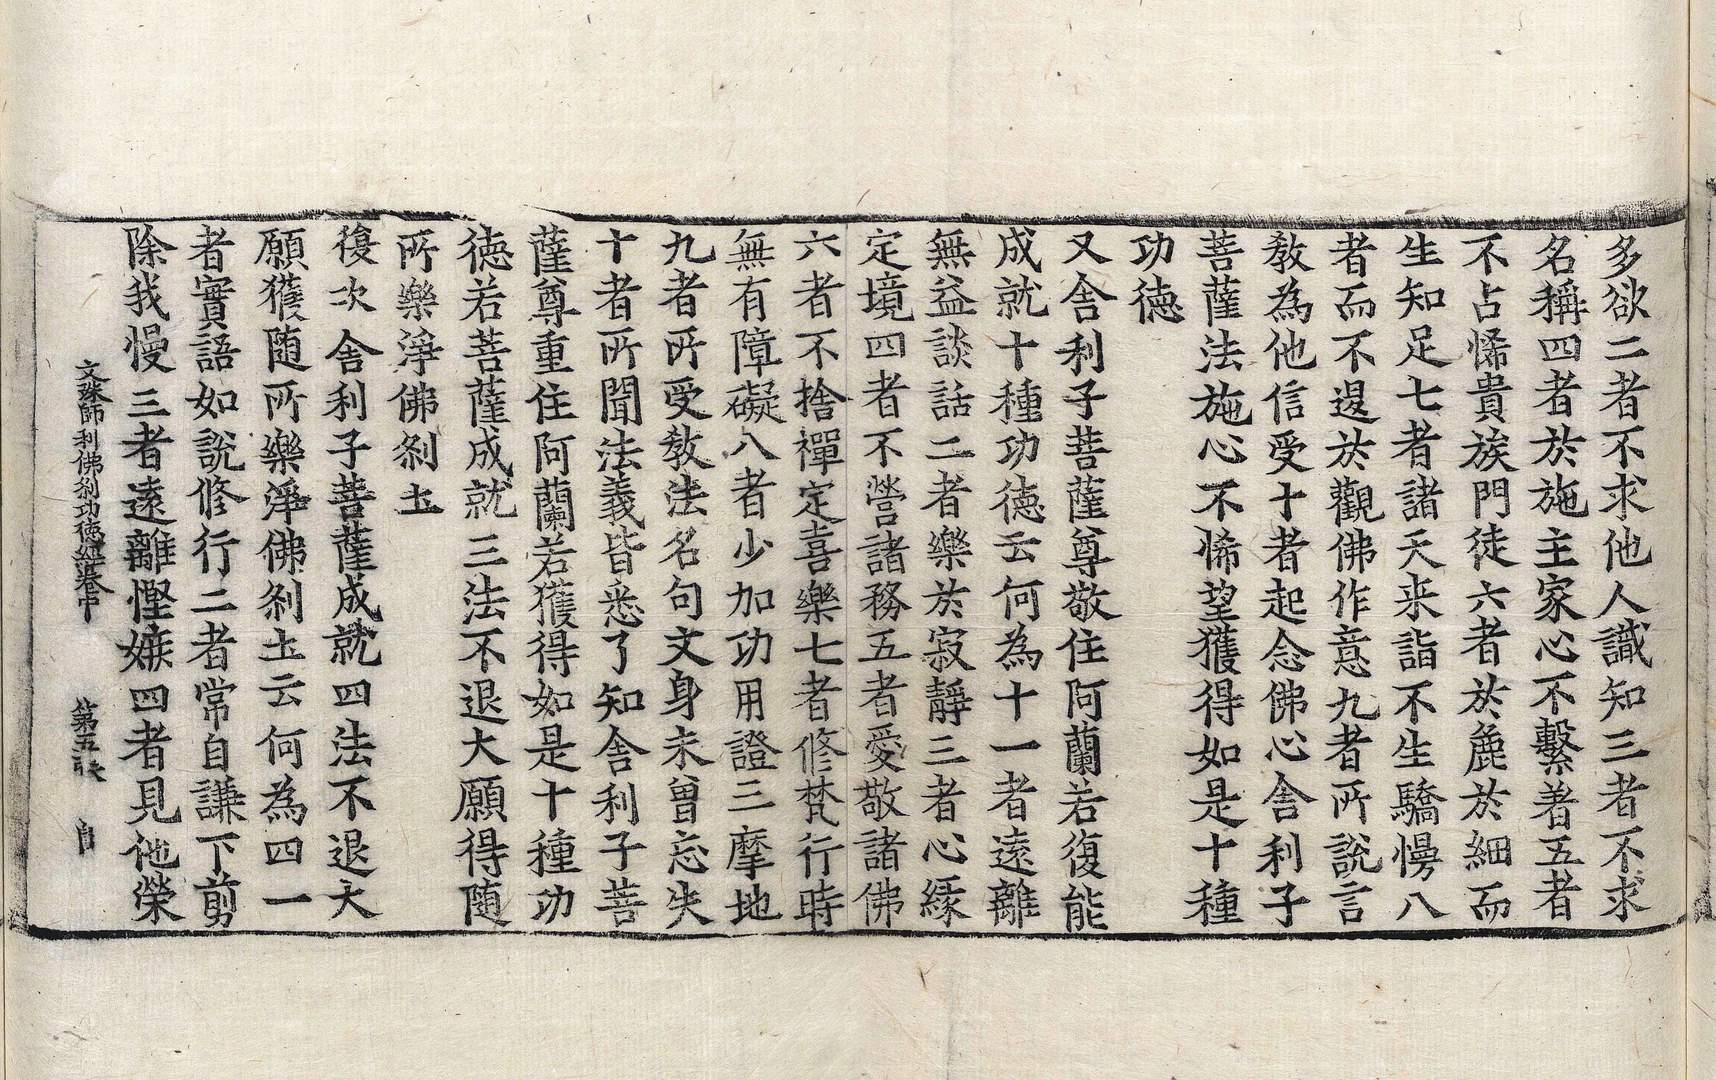 多欲二者不求他人識知三者不求
名稱四者於施主家心不繫著五者
不占悕貴族門徒六者於麁於細而
生知足七者諸天来詣不生驕慢八
者而不退於觀佛作意九者所說言
教為他信受十者起念佛心舍利子
菩薩法施心不悕望獲得如是十種
功德
又舍利子菩薩尊敬住阿蘭若復能
成就十種功德云何為十一者遠離
無益談話二者樂於寂靜三者心緣
定境四者不營諸務五者愛敬諸佛
六者不捨禪定喜樂七者修梵行時
無有障礙八者少加功用證三摩地
九者所受教法名句文身未曾忘失
十者所聞法義皆悉了知舍利子菩
薩尊重住阿蘭若獲得如是十種功
德若菩薩成就三法不退大願得随
所樂淨佛剎土
復次舍利子菩薩成就四法不退大
願獲随所樂淨佛剎土云何為四一
者實語如說修行二者常自謙下剪
除我慢三者遠離慳嫉四者見他榮
文殊師利佛剎功德經卷中 第五張 自